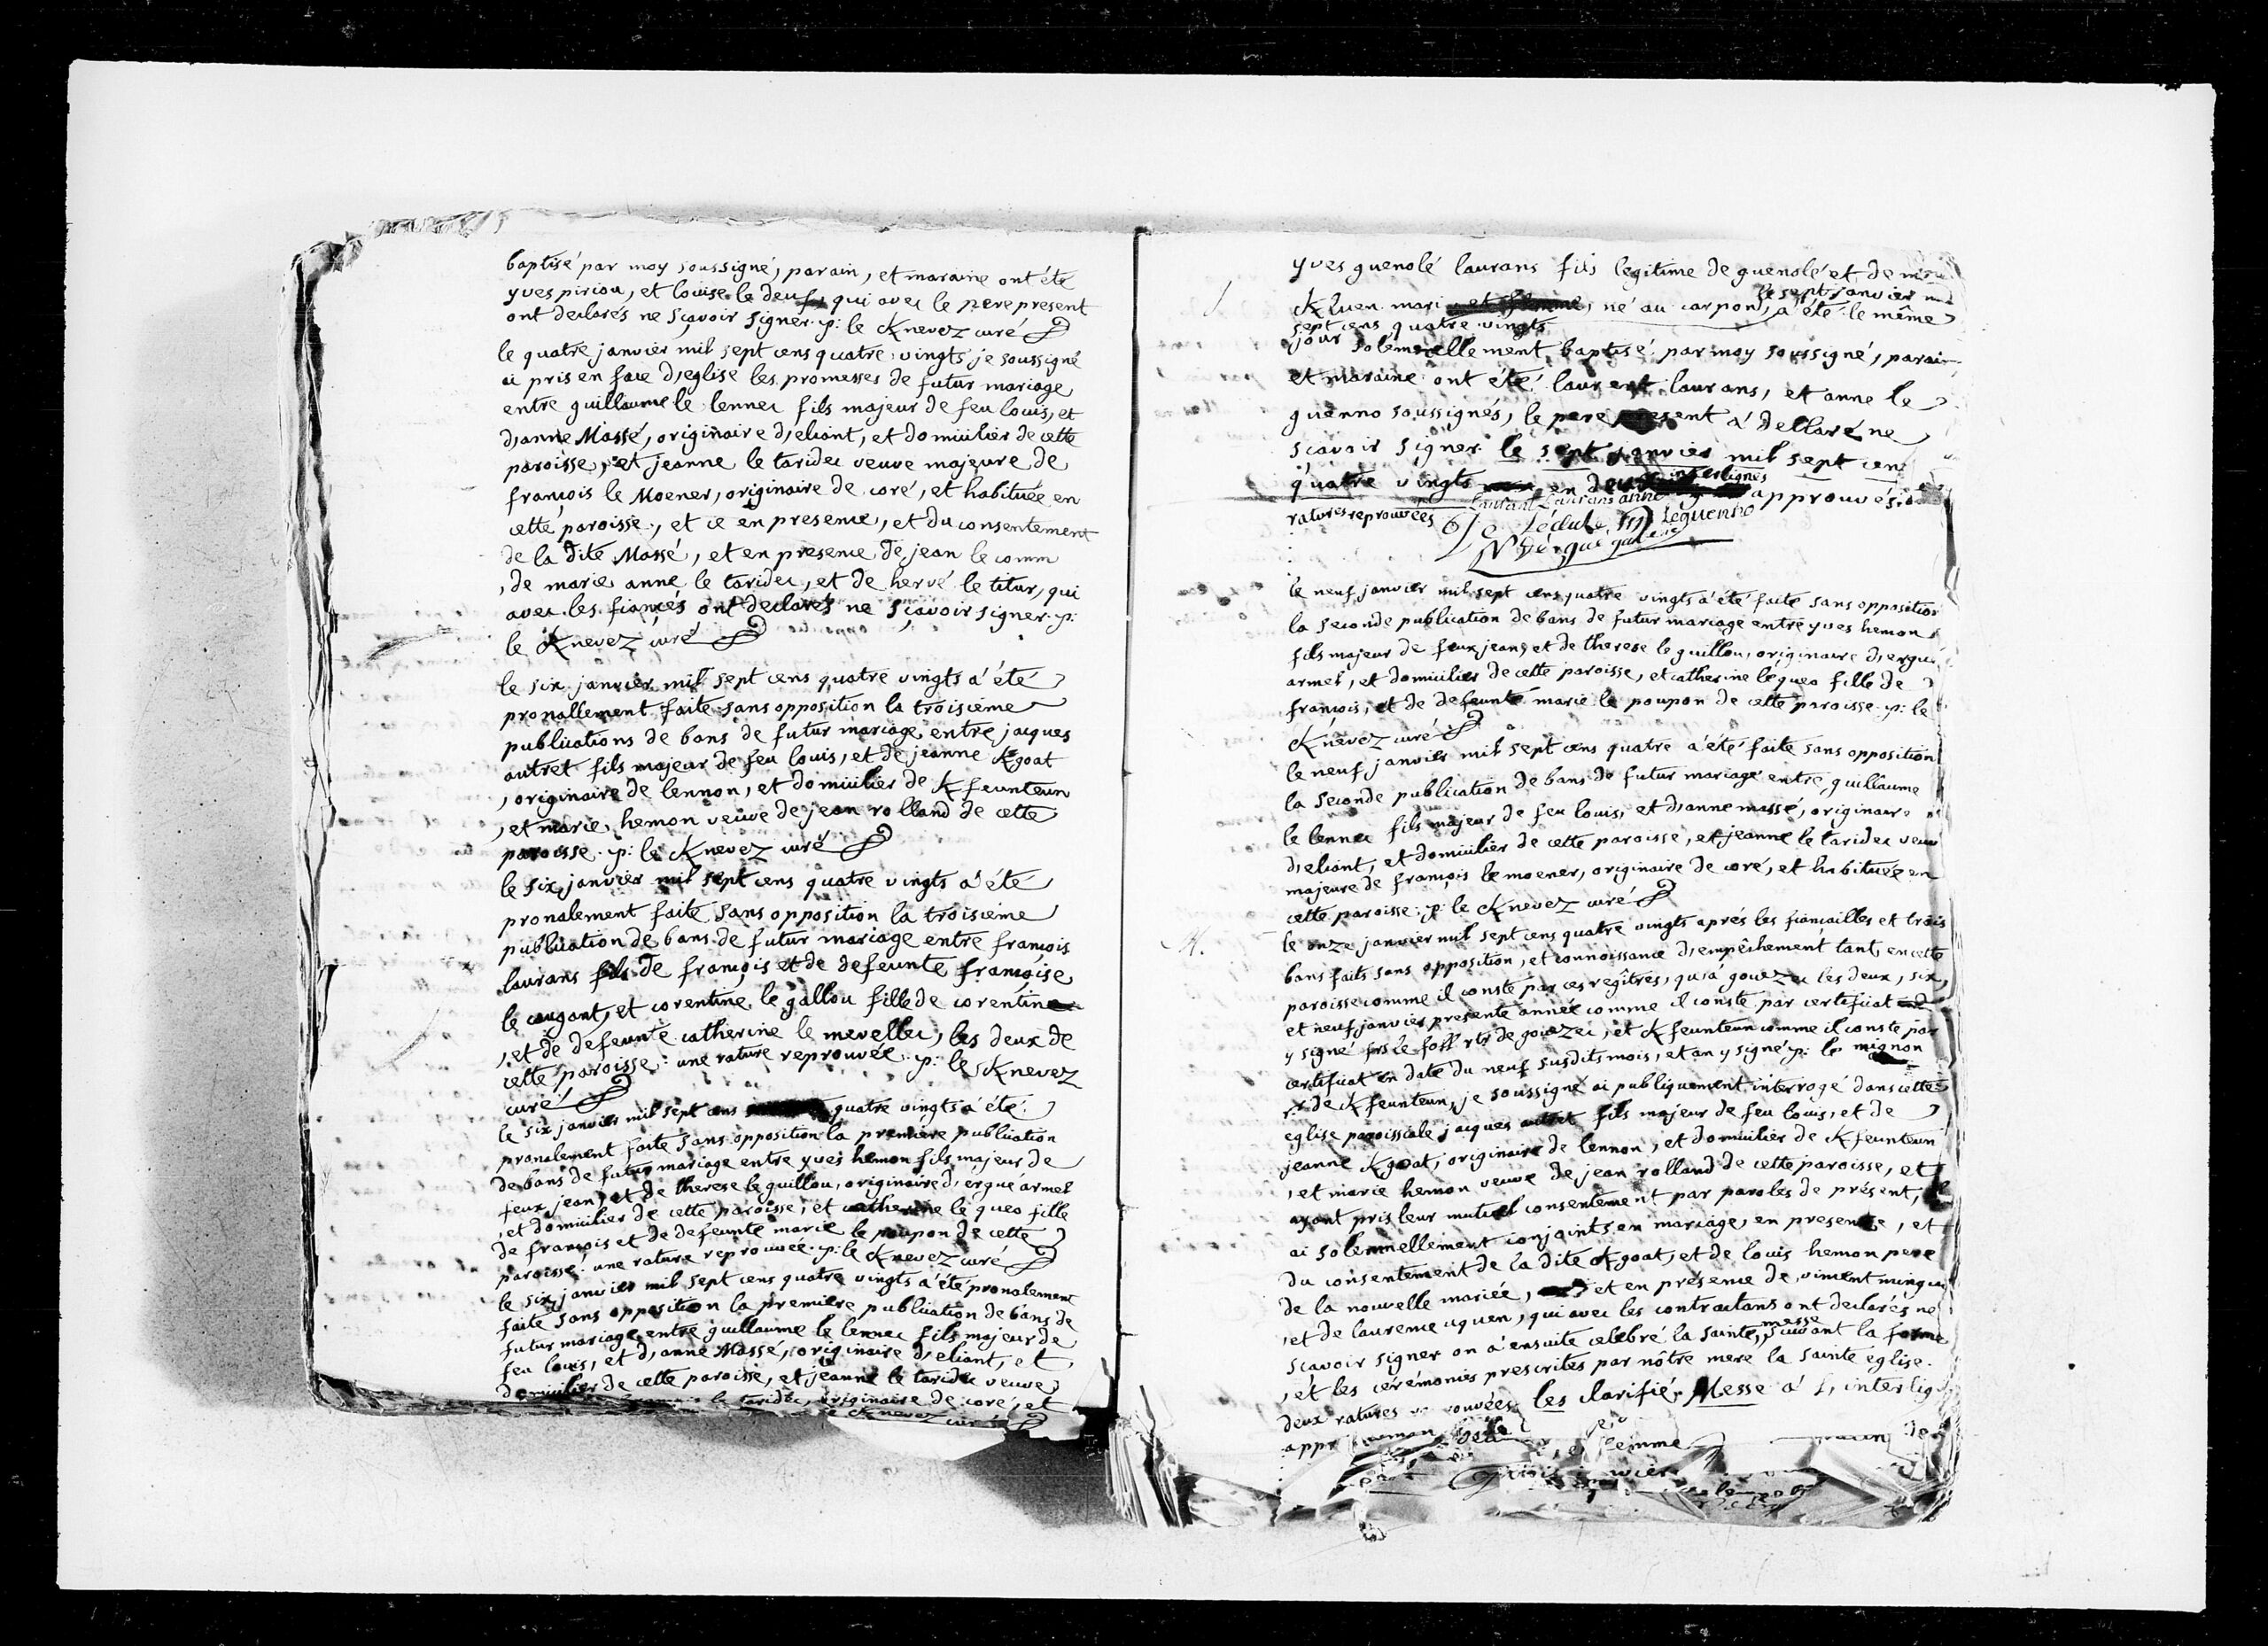 baptisé par moy soussigné, parain, et maraine ont été
yves piriou, et louise le deuf qui avec le pere present
ont declarés ne sçavoir signer. p: le Knevez curé
le quatre janvier mil sept cens quatre vingts je soussigné
ai pris en face d'eglise les promesses de futur mariage
entre guillaume le lennec fils majeur de feu louis, et
d'anne Massé, originaire d'eliant, et domicilier de cette
paroisse, et jeanne le taridec veuve majeure de
françois le Moener, originaire de coré, et habituée en
cette paroisse, et ce en presence, et du consentement
de la dite Massé, et en presence de jean le comm
, de marie anne le taridec, et de hervé le titur, qui
avec les fiancés ont declarés ne sçavoir signer. p:
le Knevez curé
le six janvier mil sept cens quatre vingts a été
pronallement faite sans opposition la troisieme
publications de bans de futur mariage entre jacques
autret fils majeur de feu louis, et de jeanne Kgoat
, originaire de lennon, et domicilier de Kfeunteun
, et marie hemon veuve de jean rolland de cette
paroisse. p: le Knevez curé
le six janvier mil sept cens quatre vingts a été
pronalement faite sans opposition la troisieme
publication de bans de futur mariage entre françois
laurans fils de françois et de defeunte françoise
le caugant, et corentine le gallou fille de corentin
, et de defeunte catherine le mevellec, les deux de
cette paroisse: une rature reprouvée. p: le Knevez
curé
le six janvier mil sept cens quatre vingts a été
pronalement faite sans opposition la premiere publication
de bans de futur mariage entre yves hemon fils majeur de
feux jean, et de therese le guillou, originaire d'ergue armel
, et domicilier de cette paroisse, et catherine le queo fille
de françois et de defeunte marie le poupon de cette
paroisse. une rature reprouvée. p: le Knevez curé
le six janvier mil sept cens quatre vingts a été pronalement
faite sans opposition la premiere publication de bans de
futur mariage entre guillaume le lennec fils majeur de
feu louis, et d'anne Massé, originaire d'eliant, et
domicilier de cette paroisse, et jeanne le taridec veuve
le taridec, originaire de coré, et
Knevez curé
yves guenolé laurans fils legitime de guenolé et de
le sept janvier mil
Kluen mari né au carpont, a été le même
sept cens quatre vingts
jour solemnellement baptisé par moy soussigné, parain
et maraine ont été laurent laurans, et anne le
guenno soussignés, le pere present a dellaré ne
sçavoir signer le sept janvier mil sept cens
interlignés
quatre vingts en deux approuvés
ratures reprouvées Laurans anne
Leguenno
le neuf janvier mil sept cens quatre vingts a été faite sans opposition
la seconde publication de bans de futur mariage entre yves hemon
fils majeur de feux jean, et de therese le guillou, originaire d'ergue
armel, et domicilier de cette paroisse, et catherine le queo fille de
françois, et de defeunte marie le poupon de cette paroisse. p: le
Knevez curé
le neuf janvier mil sept cens quatre a été faite sans opposition
la seconde publication de bans de futur mariage entre guillaume
le lennec fils majeur de feu louis, et d'anne massé, originaire
d'eliant, et domicilier de cette paroisse, et jeanne le taridec veuve
majeure de françois le moener, originaire de coré, et habituée en
cette paroisse. p: le Knevez curé
M. le onze janvier mil sept cens quatre vingts aprés les fiancailles et trois
bans faits sans opposition, et connoissance d'empêchement tant en cette
paroisse comme il conste par ces regîtres, qu'à gouezec les deux, six,
et neuf janvier presente année comme il conste par certificat
y signé le foll rtr de gouezec, et Kfeunteun comme il conste par
certificat en date du neuf susdits mois, et an y signé p: le mignon
rtr de Kfeunteun, je soussigné ai publiquement interrogé dans cette
eglise paroissiale jacques autret fils majeur de feu louis, et de
jeanne Kgoat, originaire de lennon, et domicilier de Kfeunteun
, et marie hemon veuve de jean rolland de cette paroisse, et
ayant pris leur mutuel consentement par paroles de présent,
ai solemnellement conjoints en mariage, en presence, et
du consentement de la dite Kgoat, et de louis hemon pere
de la nouvelle mariée, et en présence de vincent
, et de laurence uguen, qui avec les contractans ont declarés ne
messe
sçavoir signer on a ensuite celebré la sainte, suivant la forme
, et les cérémonies prescrites par nôtre mere la sainte eglise.
deux ratures les clarifié Messe
femme